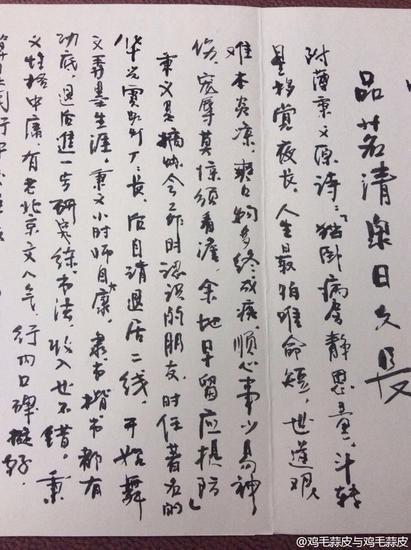 品茗清樂日久長
附薄秉文原诗:「独卧病房静思量,斗转
星移觉夜长。人生最怕唯命短,世道艰
难本炎凉。爽口物多终成疾,顺心事少易神
伤。宠辱莫惊须看淡,余地早留应提防」
秉文是搞晚会工作时认识的朋友,时任著名的
华光霓虹灯厂厂长,后自请退居二线,开始舞
文弄墨生涯。秉文小时师自大康,隶书楷书都有
功底,退后进一步研究练书法,收入也不错。秉
文性格中庸,有老北京文人气,行内口碑挺好。
@鸡毛蒜皮与鸡毛蒜皮